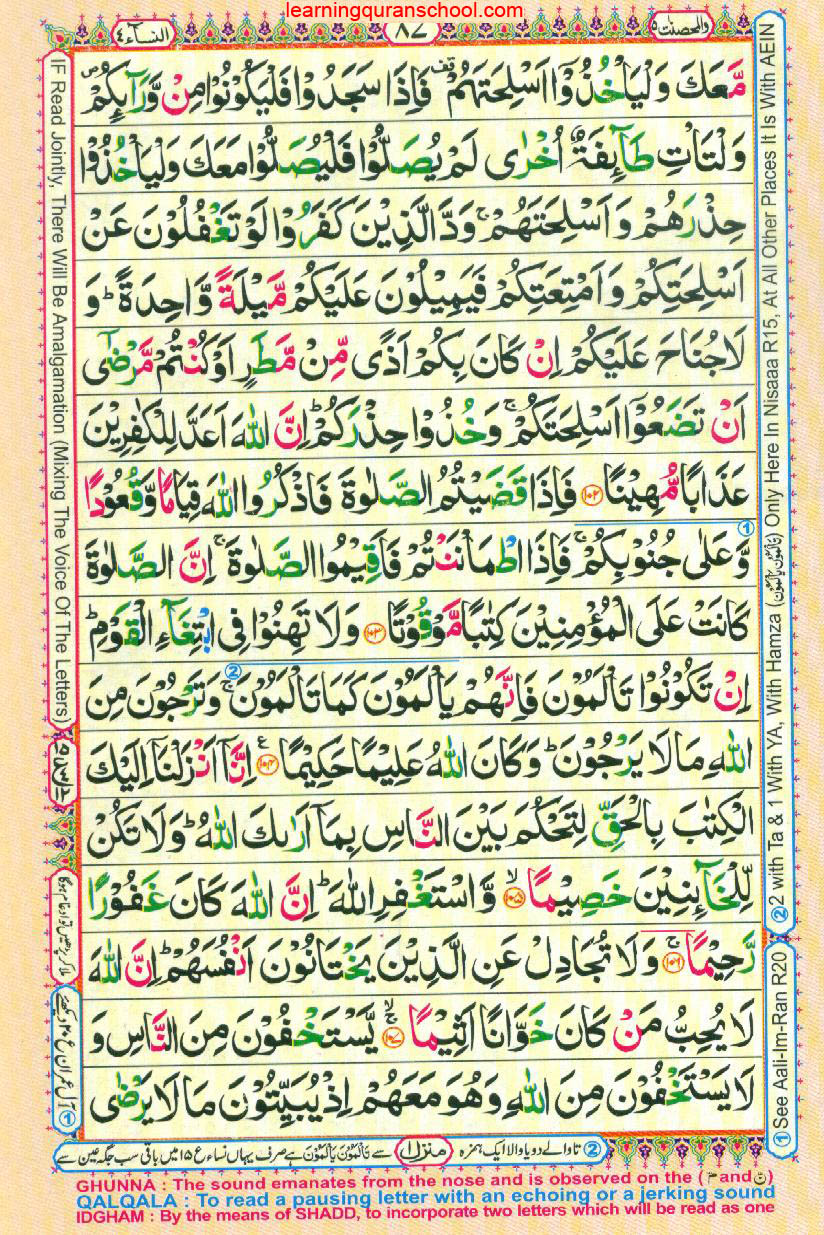 learningquranschool.com
النساء ٤
٨٧
والمحصنت ٥
مَّعَكَ وَلْيَاْخُذُوْۤا اَسْلِحَتَهُمْ ۫ فَاِذَا سَجَدُوْا فَلْيَكُوْنُوْا مِنْ وَّرَآىِٕكُمْ ۪
وَلْتَاْتِ طَآىِٕفَةٌ اُخْرٰى لَمْ يُصَلُّوْا فَلْيُصَلُّوْا مَعَكَ وَلْيَاْخُذُوْا
حِذْرَهُمْ وَاَسْلِحَتَهُمْ ۚ وَدَّ الَّذِيْنَ كَفَرُوْا لَوْ تَغْفُلُوْنَ عَنْ
اَسْلِحَتِكُمْ وَاَمْتِعَتِكُمْ فَيَمِيْلُوْنَ عَلَيْكُمْ مَّيْلَةً وَّاحِدَةً ؕ وَ
لَا جُنَاحَ عَلَيْكُمْ اِنْ كَانَ بِكُمْ اَذًى مِّنْ مَّطَرٍ اَوْ كُنْتُمْ مَّرْضٰۤى
اَنْ تَضَعُوْۤا اَسْلِحَتَكُمْ ۚ وَخُذُوْا حِذْرَكُمْ ؕ اِنَّ اللّٰهَ اَعَدَّ لِلْكٰفِرِيْنَ
عَذَابًا مُّهِيْنًا ۝۱۰۲ فَاِذَا قَضَيْتُمُ الصَّلٰوةَ فَاذْكُرُوا اللّٰهَ قِيَامًا وَّقُعُوْدًا
وَّعَلٰى جُنُوْبِكُمْ ۚ فَاِذَا اطْمَاْنَنْتُمْ فَاَقِيْمُوا الصَّلٰوةَ ۚ اِنَّ الصَّلٰوةَ
كَانَتْ عَلَى الْمُؤْمِنِيْنَ كِتٰبًا مَّوْقُوْتًا ۝۱۰۳ وَلَا تَهِنُوْا فِى ابْتِغَآءِ الْقَوْمِ ؕ
اِنْ تَكُوْنُوْا تَاْلَمُوْنَ فَاِنَّهُمْ يَاْلَمُوْنَ كَمَا تَاْلَمُوْنَ ۚ وَتَرْجُوْنَ مِنَ
اللّٰهِ مَا لَا يَرْجُوْنَ ؕ وَكَانَ اللّٰهُ عَلِيْمًا حَكِيْمًا ۝۱۰۴ اِنَّاۤ اَنْزَلْنَاۤ اِلَيْكَ
الْكِتٰبَ بِالْحَقِّ لِتَحْكُمَ بَيْنَ النَّاسِ بِمَاۤ اَرٰىكَ اللّٰهُ ؕ وَلَا تَكُنْ
لِّلْخَآىِٕنِيْنَ خَصِيْمًا ۝۱۰۵ۙ وَّاسْتَغْفِرِ اللّٰهَ ؕ اِنَّ اللّٰهَ كَانَ غَفُوْرًا
رَّحِيْمًا ۝۱۰۶ۚ وَلَا تُجَادِلْ عَنِ الَّذِيْنَ يَخْتَانُوْنَ اَنْفُسَهُمْ ؕ اِنَّ اللّٰهَ
لَا يُحِبُّ مَنْ كَانَ خَوَّانًا اَثِيْمًا ۝۱۰۷ۚۙ يَّسْتَخْفُوْنَ مِنَ النَّاسِ وَ
لَا يَسْتَخْفُوْنَ مِنَ اللّٰهِ وَهُوَ مَعَهُمْ اِذْ يُبَيِّتُوْنَ مَا لَا يَرْضٰى
② 2 with Ta & 1 With YA, With Hamza (تَاْلَمُوْنَ يَاْلَمُوْنَ) Only Here In Nisaaa R15, At All Other Places It Is With AEIN
① See Aali-Im-Ran R20
IF Read Jointly, There Will Be Amalgamation (Mixing The Voice Of The Letters)
ملا کر پڑھیں تو ادغام ہوگا
① آل عمران ع ۲۰ دیکھئے
② تا والے دو یا والا ایک ہمزہ
منزل ١
سے تَاْلَمُوْنَ يَاْلَمُوْنَ ہے صرف یہاں نساء ع ۱۵ میں باقی سب جگہ عین سے
GHUNNA : The sound emanates from the nose and is observed on the (مّ and نّ)
QALQALA : To read a pausing letter with an echoing or a jerking sound
IDGHAM : By the means of SHADD, to incorporate two letters which will be read as one